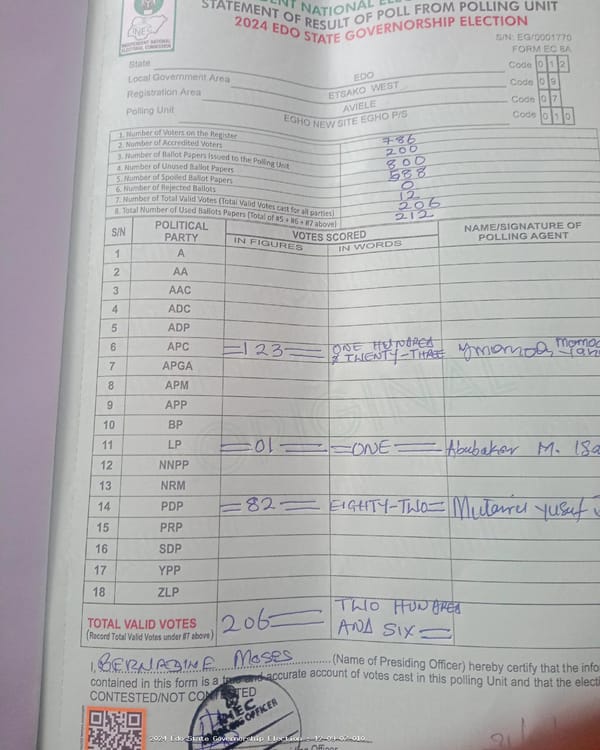 INEC
INDEPENDENT NATIONAL
ELECTORAL COMMISSION
STATEMENT OF RESULT OF POLL FROM POLLING UNIT
2024 EDO STATE GOVERNORSHIP ELECTION
S/N: EG/0001770
FORM EC 8A
State EDO Code 0 1 2
Local Government Area ETSAKO WEST Code 0 9
Registration Area AVIELE Code 0 7
Polling Unit EGHO NEW SITE EGHO P/S Code 0 1 0
1. Number of Voters on the Register 786
2. Number of Accredited Voters 200
3. Number of Ballot Papers Issued to the Polling Unit 800
4. Number of Unused Ballot Papers 588
5. Number of Spoiled Ballot Papers 0
6. Number of Rejected Ballots 12
7. Number of Total Valid Votes (Total Valid Votes cast for all parties) 206
8. Total Number of Used Ballots Papers (Total of #5 + #6 + #7 above) 212
S/N POLITICAL PARTY VOTES SCORED NAME/SIGNATURE OF POLLING AGENT
IN FIGURES IN WORDS
1 A
2 AA
3 AAC
4 ADC
5 ADP
6 APC =123= ONE HUNDRED & TWENTY-THREE
7 APGA
8 APM
9 APP
10 BP
11 LP =01= =ONE= Abubakar M. Isa
12 NNPP
13 NRM
14 PDP =82= EIGHTY-TWO= Yusuf
15 PRP
16 SDP
17 YPP
18 ZLP
TOTAL VALID VOTES 206= TWO HUNDRED
(Record Total Valid Votes under #7 above) AND SIX=
I, BERNADINE MOSES (Name of Presiding Officer) hereby certify that the info
contained in this form is a true and accurate account of votes cast in this polling Unit and that the electi
CONTESTED/NOT CONTESTED
INEC
2024 Edo State Governorship Election